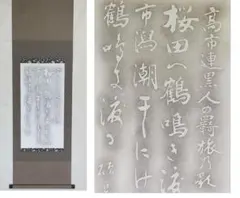 高市連黒人の羇旅の歌
桜田へ鶴鳴き渡
市潟潮干にけ
鶴鳴き渡る